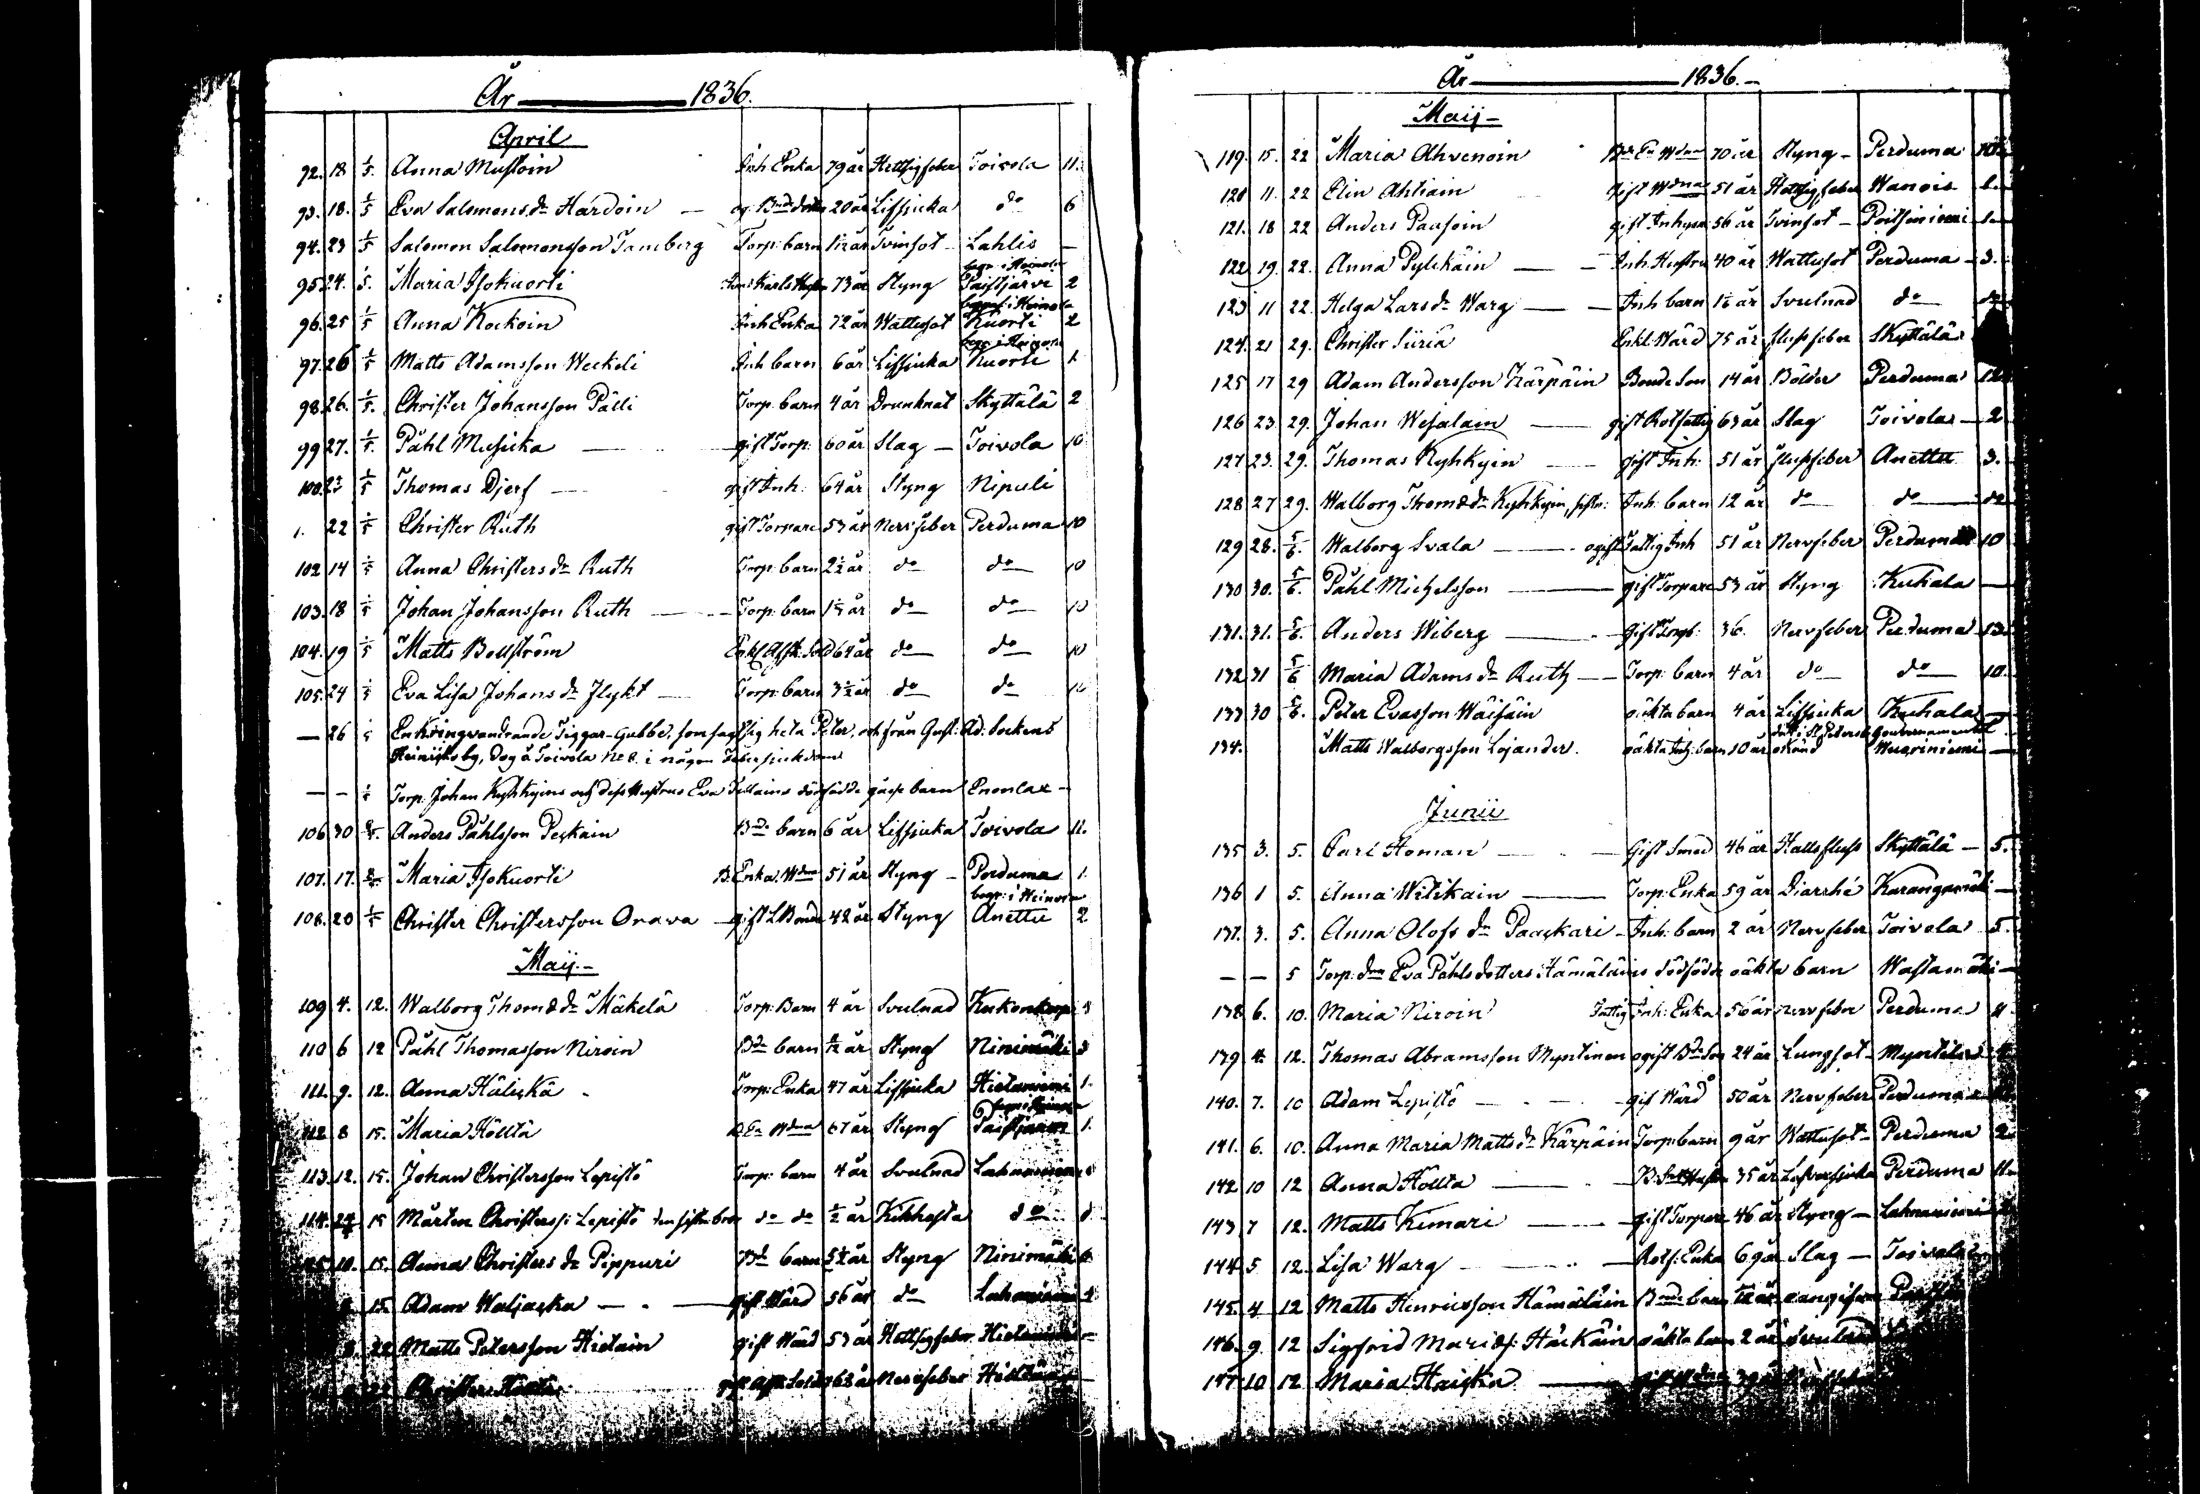 År 1836.
April
92. 18 1/5. Anna Mustoin Inh. Enka 79 år Hettsigfeber Toivola 11.
93. 18. 1/5 Eva Salomons dr Hardoin og. Bnde dotter 20 år Lifsjuka do 6
94. 23 1/5 Salomon Salomonsson Tamberg Torp: barn 1 1/2 år Tvinsot Lahlis —
begr. i Heinola
95 24. 1/5. Maria Isokuorti 73 år Styng Paistjärvi 2
begraf. i Heinola
96. 25 1/5 Anna Kockoin Inh Enka 72 år Wattusot Kuorti 2
begr. i Heinola
97. 26 1/5 Matts Adamsson Weckeli Inh barn 6 år Lifsjuka Kuorti 1
98. 26. 1/5. Christer Johansson Pälli Torp. barn 4 år Drunknat Skyttälä 2
99 27. 1/5. Påhl Musicka gift Torp: 60 år Slag — Toivola 10
100. 23 1/5 Thomas Djerf gift Inh: 64 år Styng Nipuli
1. 22 1/5 Christer Ruth gift Torpare 53 år Nervfeber Perduma 10
102 14 1/5 Anna Christers dr Ruth Torp: barn 2 1/2 år do do 10
103. 18 1/5 Johan Johansson Ruth Torp: barn år do do 10
104. 19 1/5 Matts Bollström Enkl. Afsk: Sold 64 år do do 10
105. 24 1/5 Eva Lisa Johans dr Flykt Torp: barn 3 1/2 år do do 10
— 26 1/5 En kringvandrande Tiggar-Gubbe, som sagt sig heta Peter, och från Gust: Ad. Sockens
by, Dog å Toivola N: 8. i någon Febersjukdom
— — 1/5 Torp: Johan Kyhkyins och dess Hustrus Eva dödfödde gåsse barn Enonlax —
106 30 8/5. Anders Påhlsson Peskain Bde barn 6 år Lifsjuka Toivola 11.
107. 17. 8/5 Maria Isokuorti B. Enka. Wdna 51 år Styng — Perduma 1.
begr: i Heinola
108. 20 1/5 Christer Christersson Orava gift L. Bonde 42 år Styng Anettu 2
Maij. —
109 4. 12. Walborg Thomæ dr Mäkelä Torp: Barn 4 år Svulnad
110 6 12 Påhl Thomasson Niroin Bde barn år Styng Ninimäki 3
111. 9. 12. Anna Häliskä Torp: Enka 47 år Lifsjuka Hietaniemi 1.
begr: i Heinola
112 8 15. Maria Höltta Wdna 67 år Styng 1.
113. 12. 15. Johan Christersson Lepistö Torp: barn 4 år Svulnad Lahnaniemi
114. 15 Mårten Christerss: Lepistö do do 1/2 år Kikhosta do
10. 15. Anna Christers dr Pippuri Bde barn år Styng Ninimäki
15. Adam Waljacka gift Wärd 56 år do Lahnaniemi 2
22 Matts Petersson Hietain gift Wärd 53 år Hettsigfeber Hietaniemi —
Christer gift Afsk: Sold 68 år Nervfeber
År 1836. —
Maij —
119. 15. 22 Maria Ahvenoin Wdna 70 år Styng — Perduma
120 11. 22 Elin Ahtiain gift Wdna 51 år Hettsigfeber Wanois
121. 18 22 Anders Paasoin gift Inhyses 56 år Tvinsot —
122 19. 22. Anna Pylckäin Inh. Hustru 40 år Wattusot Perduma 3.
123 11 22. Helga Lars dr Warg Inh barn 1 1/2 år Svulnad do do
124. 21 29. Christer Siiria Enkl. Wärd 75 år flussfeber Skyttälä
125 17 29 Adam Andersson Kärpäin Bonde Son 14 år Bölder Perduma 12
126 23. 29. Johan Wesalain gift Rotfattig 63 år Slag Toivola — 2
127 23. 29. Thomas Kyhkyin gift Inh: 51 år flussfeber Anettu 3.
128 27 29. Walborg Thomæ dr Kyhkyin, Inh: barn 12 år do do do
129 28. 5/6. Walborg Svala ogift Fattig Inh 51 år Nervfeber Perduma 10
130 30. 5/6. Påhl Michelsson gift Torpare 53 år Styng Kuhala —
131. 31. 5/6. Anders Wiberg Gift Torp: 36. Nervfeber Perduma 13.
132 31 5/6 Maria Adams dr Ruth Torp: barn 4 år do do 10.
133 30 5/6. Peter Evasson Wäisäin oäkta barn 4 år Lifsjuka Kuhala —
död i St Petersb. Gouvernementet
134. Matts Walborgsson Lojander. oäkta Inh: barn 10 år okänd —
Junii
135 3. 5. Carl Homan Gift Smed 46 år Hallsfluss Skyttälä — 5.
136 1 5. Anna Witikain Torp: Enka 59 år Diarrhé Karangamäki —
137. 3. 5. Anna Olofs dr Paaskari Inh: barn 2 år Nervfeber Toivola 5.
— — 5 Torp. drn Eva Påhlsdotters Hämäläins dödföda oäkta barn Wastamäki —
138 6. 10. Maria Niroin Fattig Inh: Enka 56 år nervfeber Perduma 11
139 4. 12. Thomas Abramsson Myntinen ogift Bde Son 24 år Lungsot — Myntilä
140. 7. 10 Adam Lepistö gif Wärd 50 år Nervfeber Perduma
141. 6. 10. Anna Maria Matts dr Kärpäin Torp: barn 9 år Wattusot — Perduma 2
142 10 12 Anna Höltta 35 år Perduma 11.
143 7 12. Matts Kimari gift Torpare 46 år Styng — Lahnaniemi
144. 5 12. Lisa Warg Rotf: Enka 69 år Slag — Toivola
145. 4 12 Matts Henricsson Hämäläin Bnde barn
146. 9. 12 Sigfrid Mariæs: Härkäin oäkta barn 2 år Svulnad
147 10 12 Maria Haiska